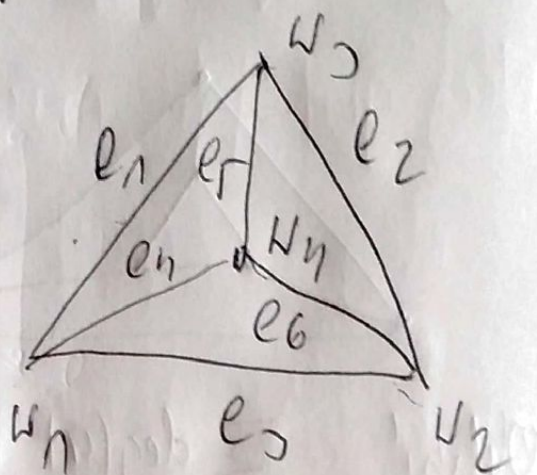 w3
e1
e2
e5
e4
w4
e6
w1
e3
w2